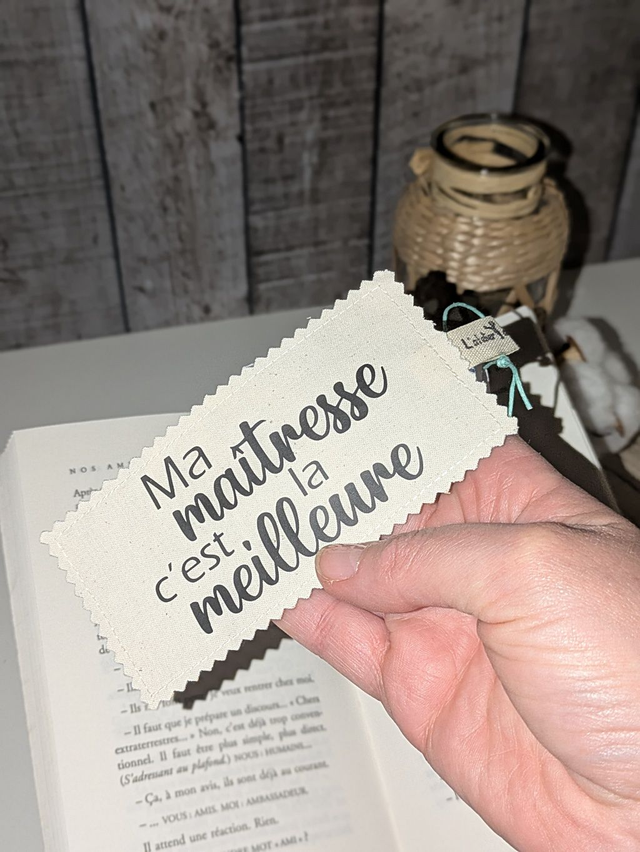 Ma
maîtresse
c'est la
meilleure
L'atelier
NOS AM
Après
– Il
– Ils
je veux rentrer chez moi.
– Il faut que je prépare un discours... « Chers
extraterrestres... » Non, c'est déjà trop conven-
tionnel. Il faut être plus simple, plus direct.
(S'adressant au plafond.) NOUS : HUMAINS...
– Ça, à mon avis, ils sont déjà au courant.
– ... VOUS : AMIS. MOI : AMBASSADEUR.
Il attend une réaction. Rien.
MOT « AMI » ?